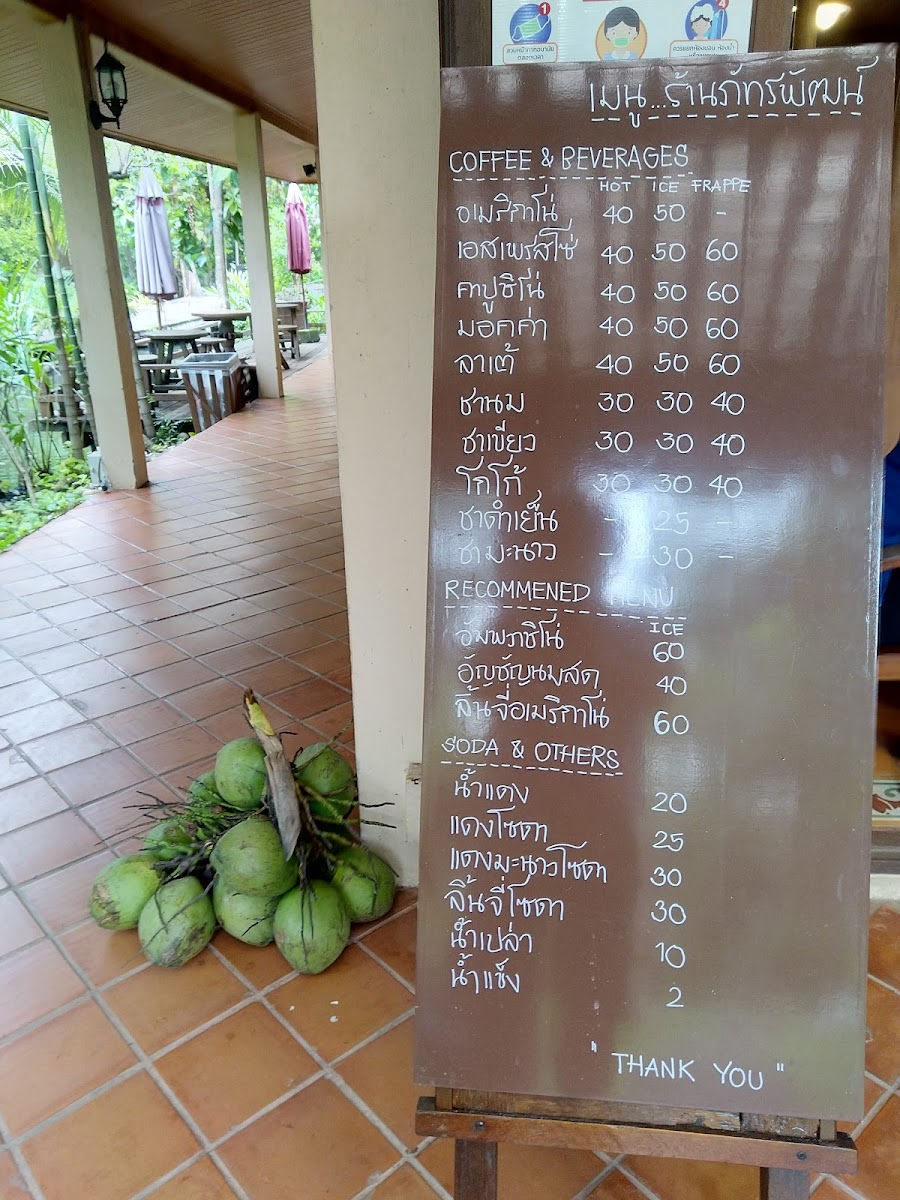 1
4
สวมหน้ากากอนามัย
ตลอดเวลา
เมนู...ร้านภัทรพัฒน์
COFFEE & BEVERAGES
HOT ICE FRAPPE
อเมริกาโน่ 40 50 -
เอสเพรสโซ่ 40 50 60
คาปูชิโน่ 40 50 60
มอคค่า 40 50 60
ลาเต้ 40 50 60
ชานม 30 30 40
ชาเขียว 30 30 40
โกโก้ 30 30 40
ชาดำเย็น - 25 -
ชามะนาว - 30 -
RECOMMENED MENU
ICE
อัมพภชิโน่ 60
อัญชัญนมสด 40
ลิ้นจี่อเมริกาโน่ 60
SODA & OTHERS
น้ำแดง 20
แดงโซดา 25
แดงมะนาวโซดา 30
ลิ้นจี่โซดา 30
น้ำเปล่า 10
น้ำแข็ง 2
" THANK YOU "